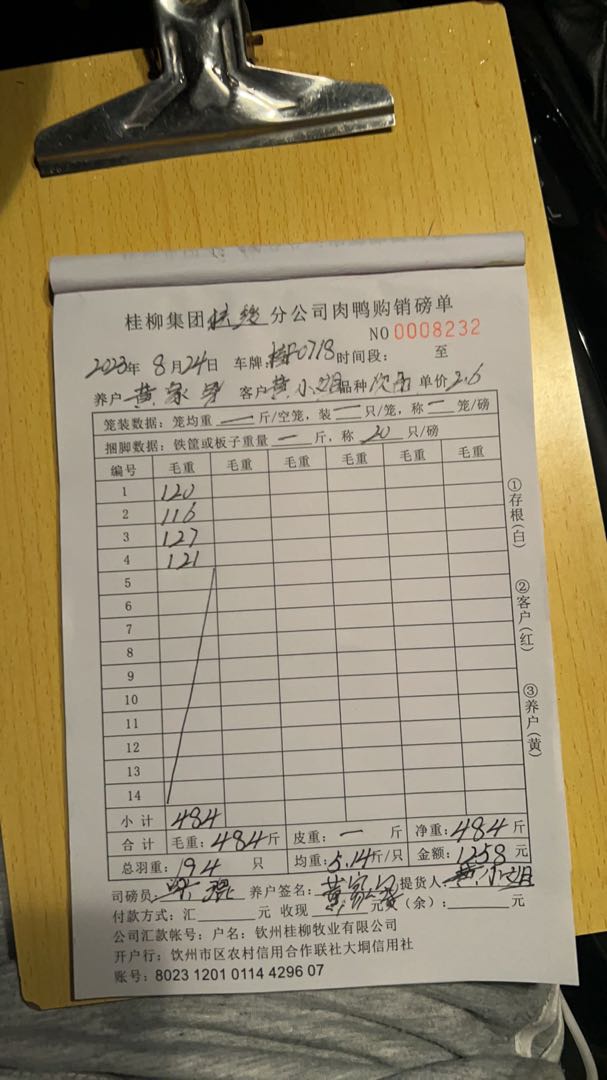 桂柳集团 分公司肉鸭购销磅单
NO 0008232
2023年 8月24日 车牌: 0718 时间段: 至
养户 黄家 客户 黄小 品种 单价 2.6
笼装数据: 笼均重 一 斤/空笼, 装 一 只/笼, 称 一 笼/磅
捆脚数据: 铁筐或板子重量 一 斤, 称 20 只/磅
编号 毛重 毛重 毛重 毛重 毛重 毛重
1 120
2 116
3 127
4 121
5
6
7
8
9
10
11
12
13
14
小计 484
合计 毛重: 484斤 皮重: 一 斤 净重: 484斤
总羽重: 194 只 均重: 5.14斤/只 金额: 1258元
司磅员: 养户签名: 黄家 提货人 黄小
付款方式: 汇 元 收现 元 (余): 元
公司汇款帐号: 户名: 钦州桂柳牧业有限公司
开户行: 钦州市区农村信用合作联社大垌信用社
账号: 8023 1201 0114 4296 07
①存根(白)
②客户(红)
③养户(黄)